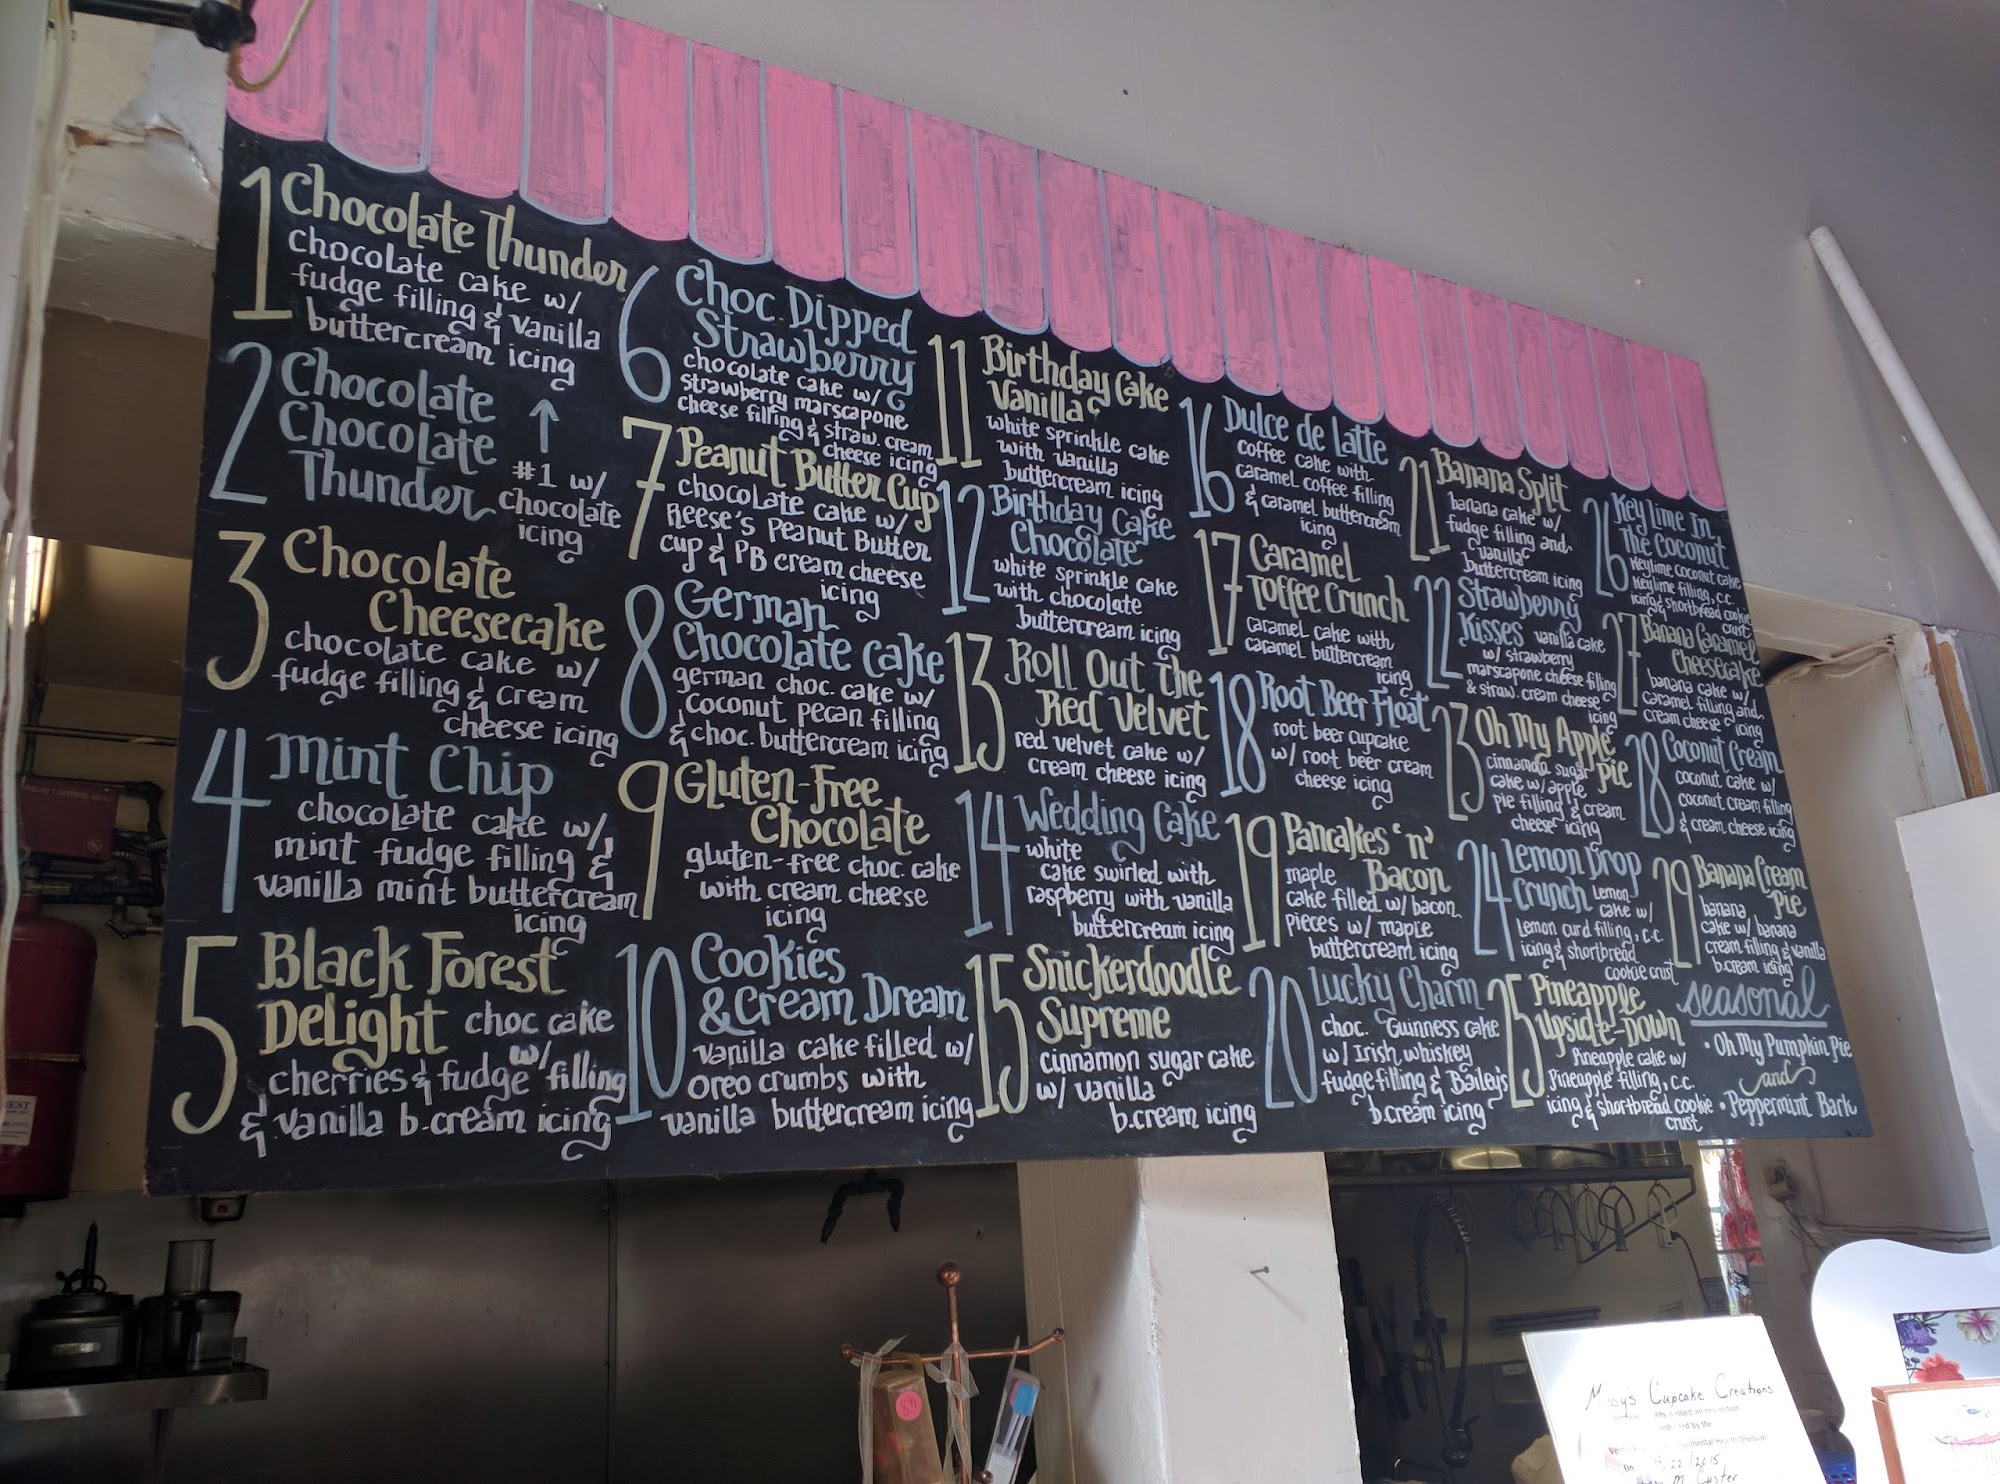 1 Chocolate Thunder
chocolate cake w/
fudge filling & vanilla
buttercream icing
2 Chocolate
Chocolate
Thunder
#1 w/
chocolate
icing
3 Chocolate
Cheesecake
chocolate cake w/
fudge filling & cream
cheese icing
4 Mint Chip
chocolate cake w/
mint fudge filling &
vanilla mint buttercream
icing
5 Black Forest
Delight choc cake
w/
cherries & fudge filling
& vanilla b.cream icing
6 Choc. Dipped
Strawberry
chocolate cake w/
strawberry marscapone
cheese filling & straw. cream
cheese icing
7 Peanut Butter Cup
chocolate cake w/
Reese's Peanut Butter
cup & PB cream cheese
icing
8 German
Chocolate Cake
german choc. cake w/
coconut pecan filling
& choc. buttercream icing
9 Gluten-Free
Chocolate
gluten-free choc. cake
with cream cheese
icing
10 Cookies
& Cream Dream
vanilla cake filled w/
oreo crumbs with
vanilla buttercream icing
11 Birthday Cake
Vanilla
white sprinkle cake
with vanilla
buttercream icing
12 Birthday Cake
Chocolate
white sprinkle cake
with chocolate
buttercream icing
13 Roll Out the
Red Velvet
red velvet cake w/
cream cheese icing
14 Wedding Cake
white
cake swirled with
raspberry with vanilla
buttercream icing
15 Snickerdoodle
Supreme
cinnamon sugar cake
w/ vanilla
b.cream icing
16 Dulce de Latte
coffee cake with
caramel coffee filling
& caramel buttercream
icing
17 Caramel
Toffee Crunch
caramel cake with
caramel buttercream
icing
18 Root Beer Float
root beer cupcake
w/ root beer cream
cheese icing
19 Pancakes 'n'
Bacon
maple
cake filled w/ bacon
pieces w/ maple
buttercream icing
20 Lucky Charm
choc. Guinness cake
w/ Irish whiskey
fudge filling & Baileys
b.cream icing
21 Banana Split
banana cake w/
fudge filling and
vanilla
buttercream icing
22 Strawberry
Kisses vanilla cake
w/ strawberry
marscapone cheese filling
& straw. cream cheese
icing
23 Oh My Apple
Pie
cinnamon sugar
cake w/ apple
pie filling & cream
cheese icing
24 Lemon Drop
Crunch Lemon
cake w/
Lemon curd filling, c.c.
icing & shortbread
cookie crust
25 Pineapple
Upside-Down
Pineapple cake w/
Pineapple filling, c.c.
icing & shortbread cookie
crust
26 Key Lime In
The Coconut
Keylime Coconut cake
Keylime filling, c.c.
icing & shortbread cookie
crust
27 Banana Caramel
Cheesecake
banana cake w/
caramel filling and
cream cheese icing
28 Coconut Cream
coconut cake w/
coconut cream filling
& cream cheese icing
29 Banana Cream
Pie
banana
cake w/ banana
cream filling & vanilla
b.cream icing
Seasonal
• Oh My Pumpkin Pie
and
• Peppermint Bark
Missy's Cupcake Creations